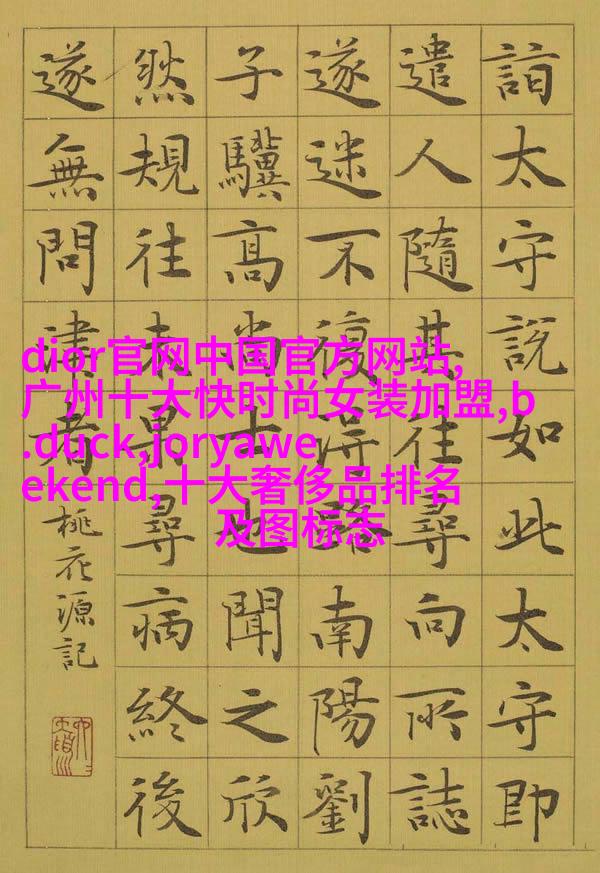 詣太守說如此太守即
遣人隨其往尋向所誌
遂迷不復得路南陽劉
子驥髙尚士也聞之欣
然規往未果尋病終後
遂無問津者
桃花源記
dior官网中国官方网站,
广州十大快时尚女装加盟,b
.duck,joryawe
ekend,十大奢侈品排名
及图标志